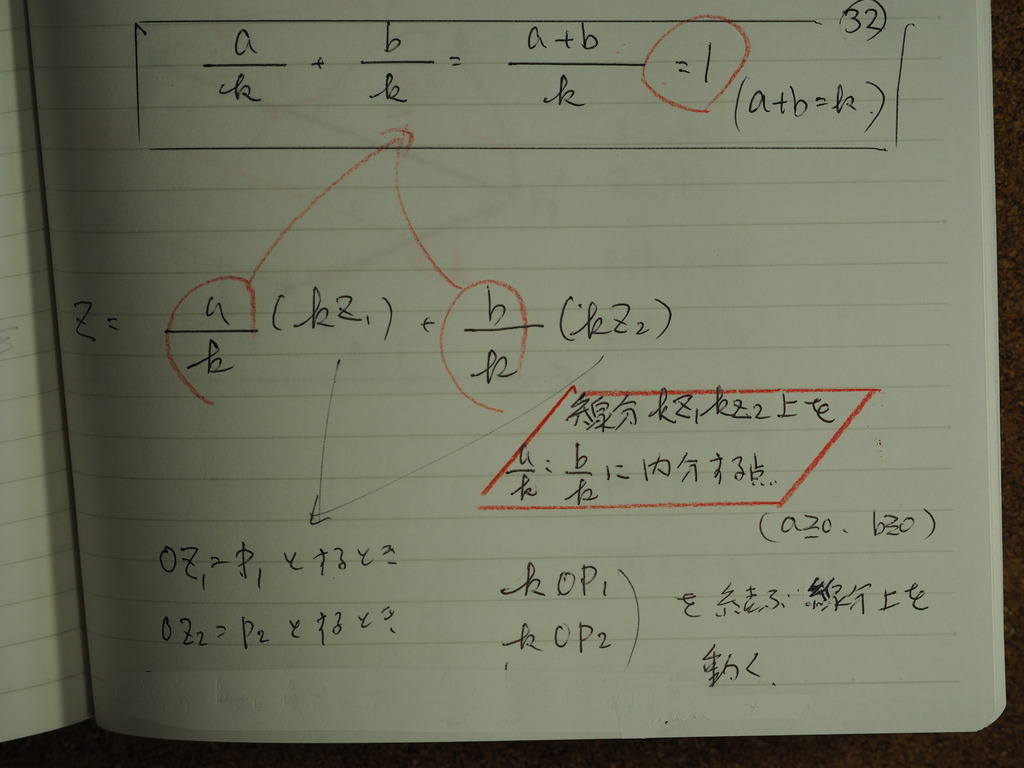 32
a/k + b/k = a+b/k = 1 (a+b=k.)
Z = a/k (kZ₁) + b/k (kZ₂)
線分kZ₁kZ₂上を
a/k : b/k に内分する点.
(a≧0、b≧0)
OZ₁=P₁ とすると
OZ₂=P₂ とすると
kOP₁
kOP₂
を結ぶ線分上を
動く.